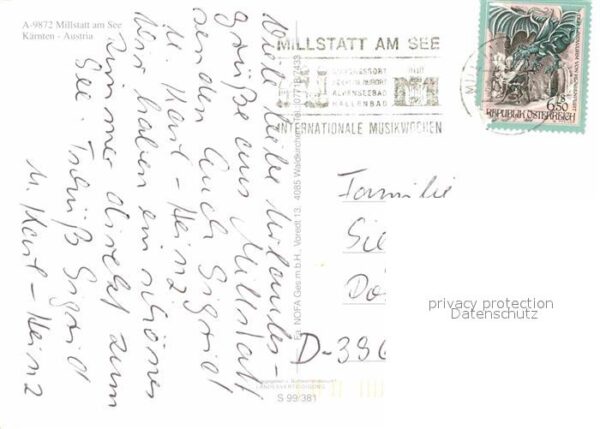 A-9872 Millstatt am See
Kärnten - Austria
Viele liebe Urlaubs-
grüße aus Millstatt
senden Euch Sigrid
u. Karl-Heinz
Wir haben ein schönes
Zimmer direkt zum
See. Tschüß Sigrid
u. Karl-Heinz
Fa. NOFA Ges.m.b.H., Voredt 13, 4085 Waldkirchen, Tel. (07718) 7433
MILLSTATT AM SEE
ALPENSEEBAD
HALLENBAD
INTERNATIONALE MUSIKWOCHEN
6.50
REPUBLIK ÖSTERREICH
Familie
Sie
D-396
privacy protection
Datenschutz
LANDESVERTEIDIGUNG
S 99/381